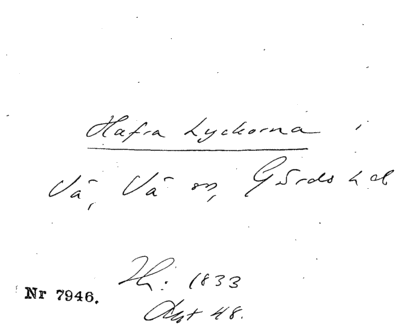 Hafra Lyckorna i
Vä, Vä sn, Gärds hd
Nr 7946.
1833
Akt 48.